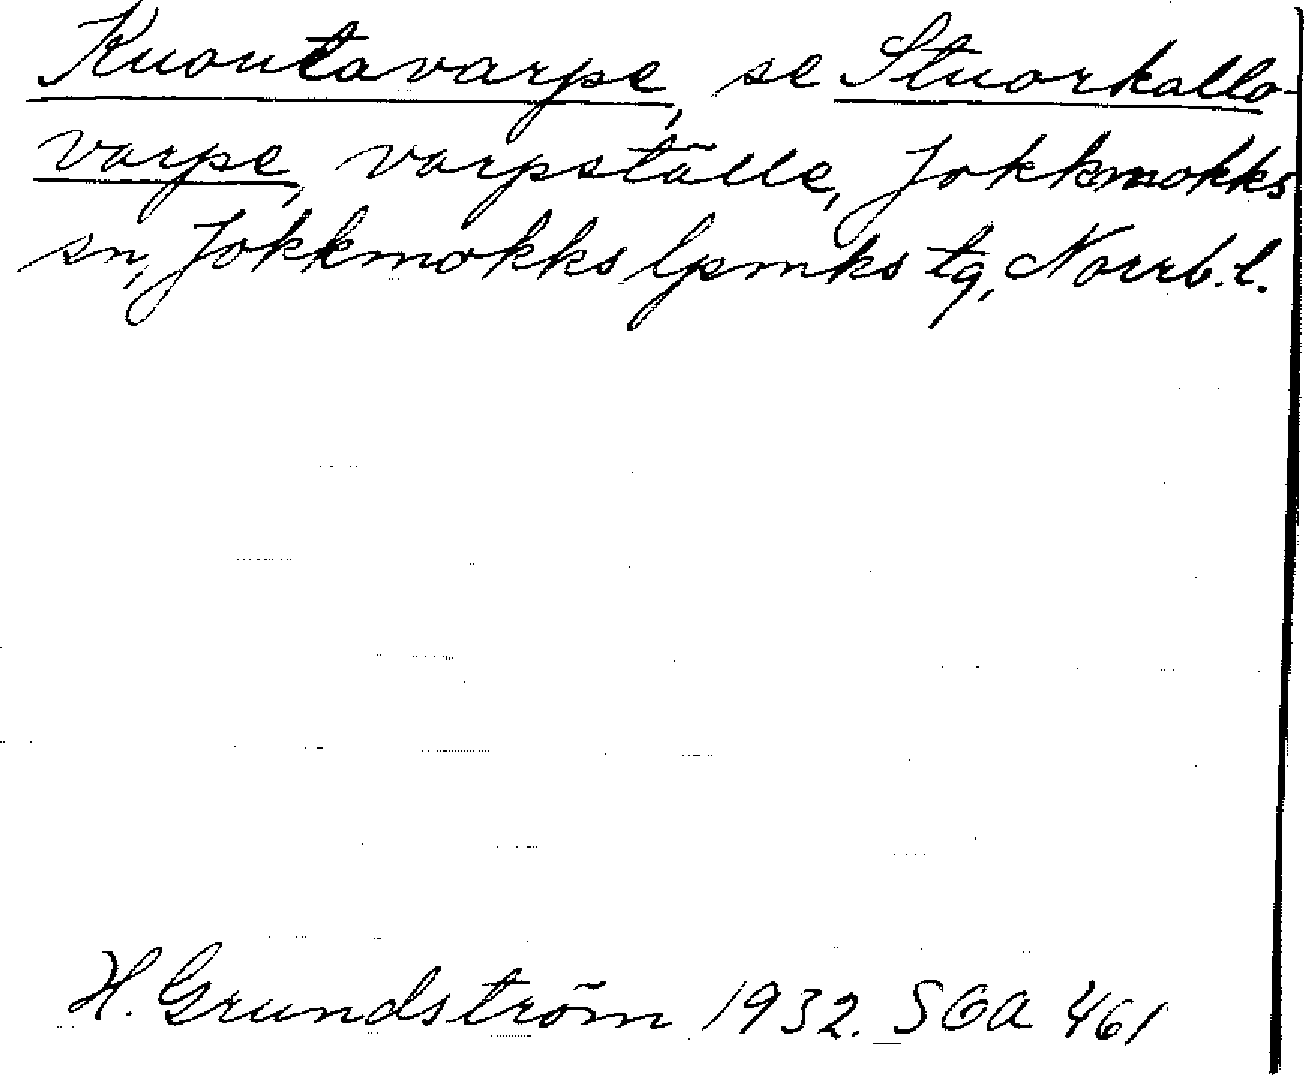 Kuoutavarpe, se Stuorkallo-
varpe, varpställe, Jokkmokks
sn, Jokkmokks lpmks tg, Norrb.l.
H. Grundström 1932. SOA 461